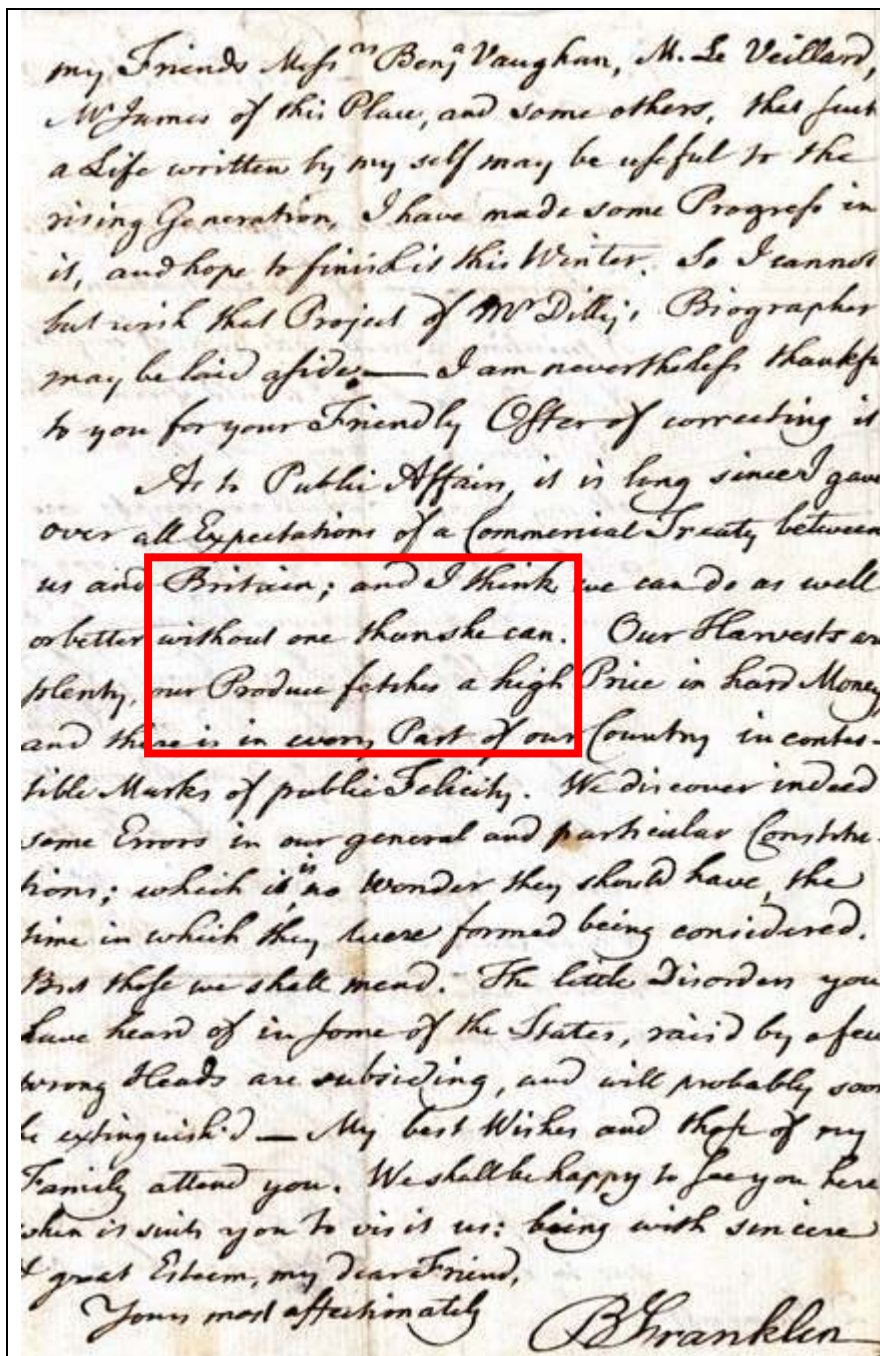 my Friends Messrs Benja Vaughan, M. Le Veillard,
Mr James of this Place, and some others, that such
a Life written by my self may be useful to the
rising Generation, I have made some Progress in
it, and hope to finish it this Winter. So I cannot
but wish that Project of Mr Dilly's Biographer
may be laid aside. — I am nevertheless thankfu
to you for your Friendly Offer of correcting it
As to Public Affairs, it is long since I gave
over all Expectations of a Commercial Treaty between
us and Britain; and I think we can do as well
or better without one than she can. Our Harvests are
plenty, our Produce fetches a high Price in hard Money,
and there is in every Part of our Country incontes-
tible Marks of public Felicity. We discover indeed
some Errors in our general and particular Constitu-
tions; which it is no Wonder they should have, the
time in which they were formed being considered.
But these we shall mend. The little Disorders you
have heard of in some of the States, rais'd by a few
wrong Heads are subsiding, and will probably soon
be extinguish'd — My best Wishes and those of my
Family attend you. We shall be happy to see you here
when it suits you to visit us: being with sincere
& great Esteem, my dear Friend,
Yours most affectionately
B Franklin